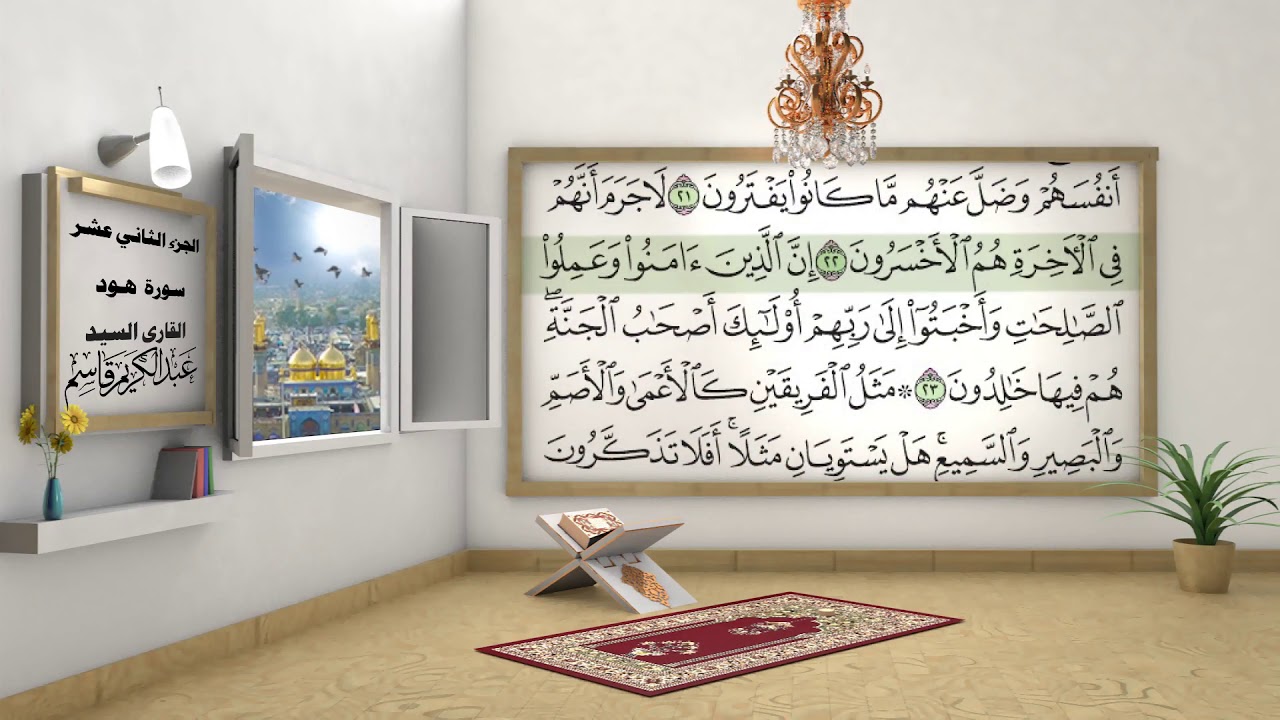 أَنفُسَهُمْ وَضَلَّ عَنْهُم مَّا كَانُوا۟ يَفْتَرُونَ ٢١ لَا جَرَمَ أَنَّهُمْ
فِى ٱلْأَخِرَةِ هُمُ ٱلْأَخْسَرُونَ ٢٢ إِنَّ ٱلَّذِينَ ءَامَنُوا۟ وَعَمِلُوا۟
ٱلصَّـٰلِحَـٰتِ وَأَخْبَتُوٓا۟ إِلَىٰ رَبِّهِمْ أُو۟لَـٰٓئِكَ أَصْحَـٰبُ ٱلْجَنَّةِ ۖ
هُمْ فِيهَا خَـٰلِدُونَ ٢٣ ۞ مَثَلُ ٱلْفَرِيقَيْنِ كَٱلْأَعْمَىٰ وَٱلْأَصَمِّ
وَٱلْبَصِيرِ وَٱلسَّمِيعِ ۚ هَلْ يَسْتَوِيَانِ مَثَلًا ۚ أَفَلَا تَذَكَّرُونَ
الجزء الثاني عشر
سورة هود
القارئ السيد
عبد الكريم قاسم